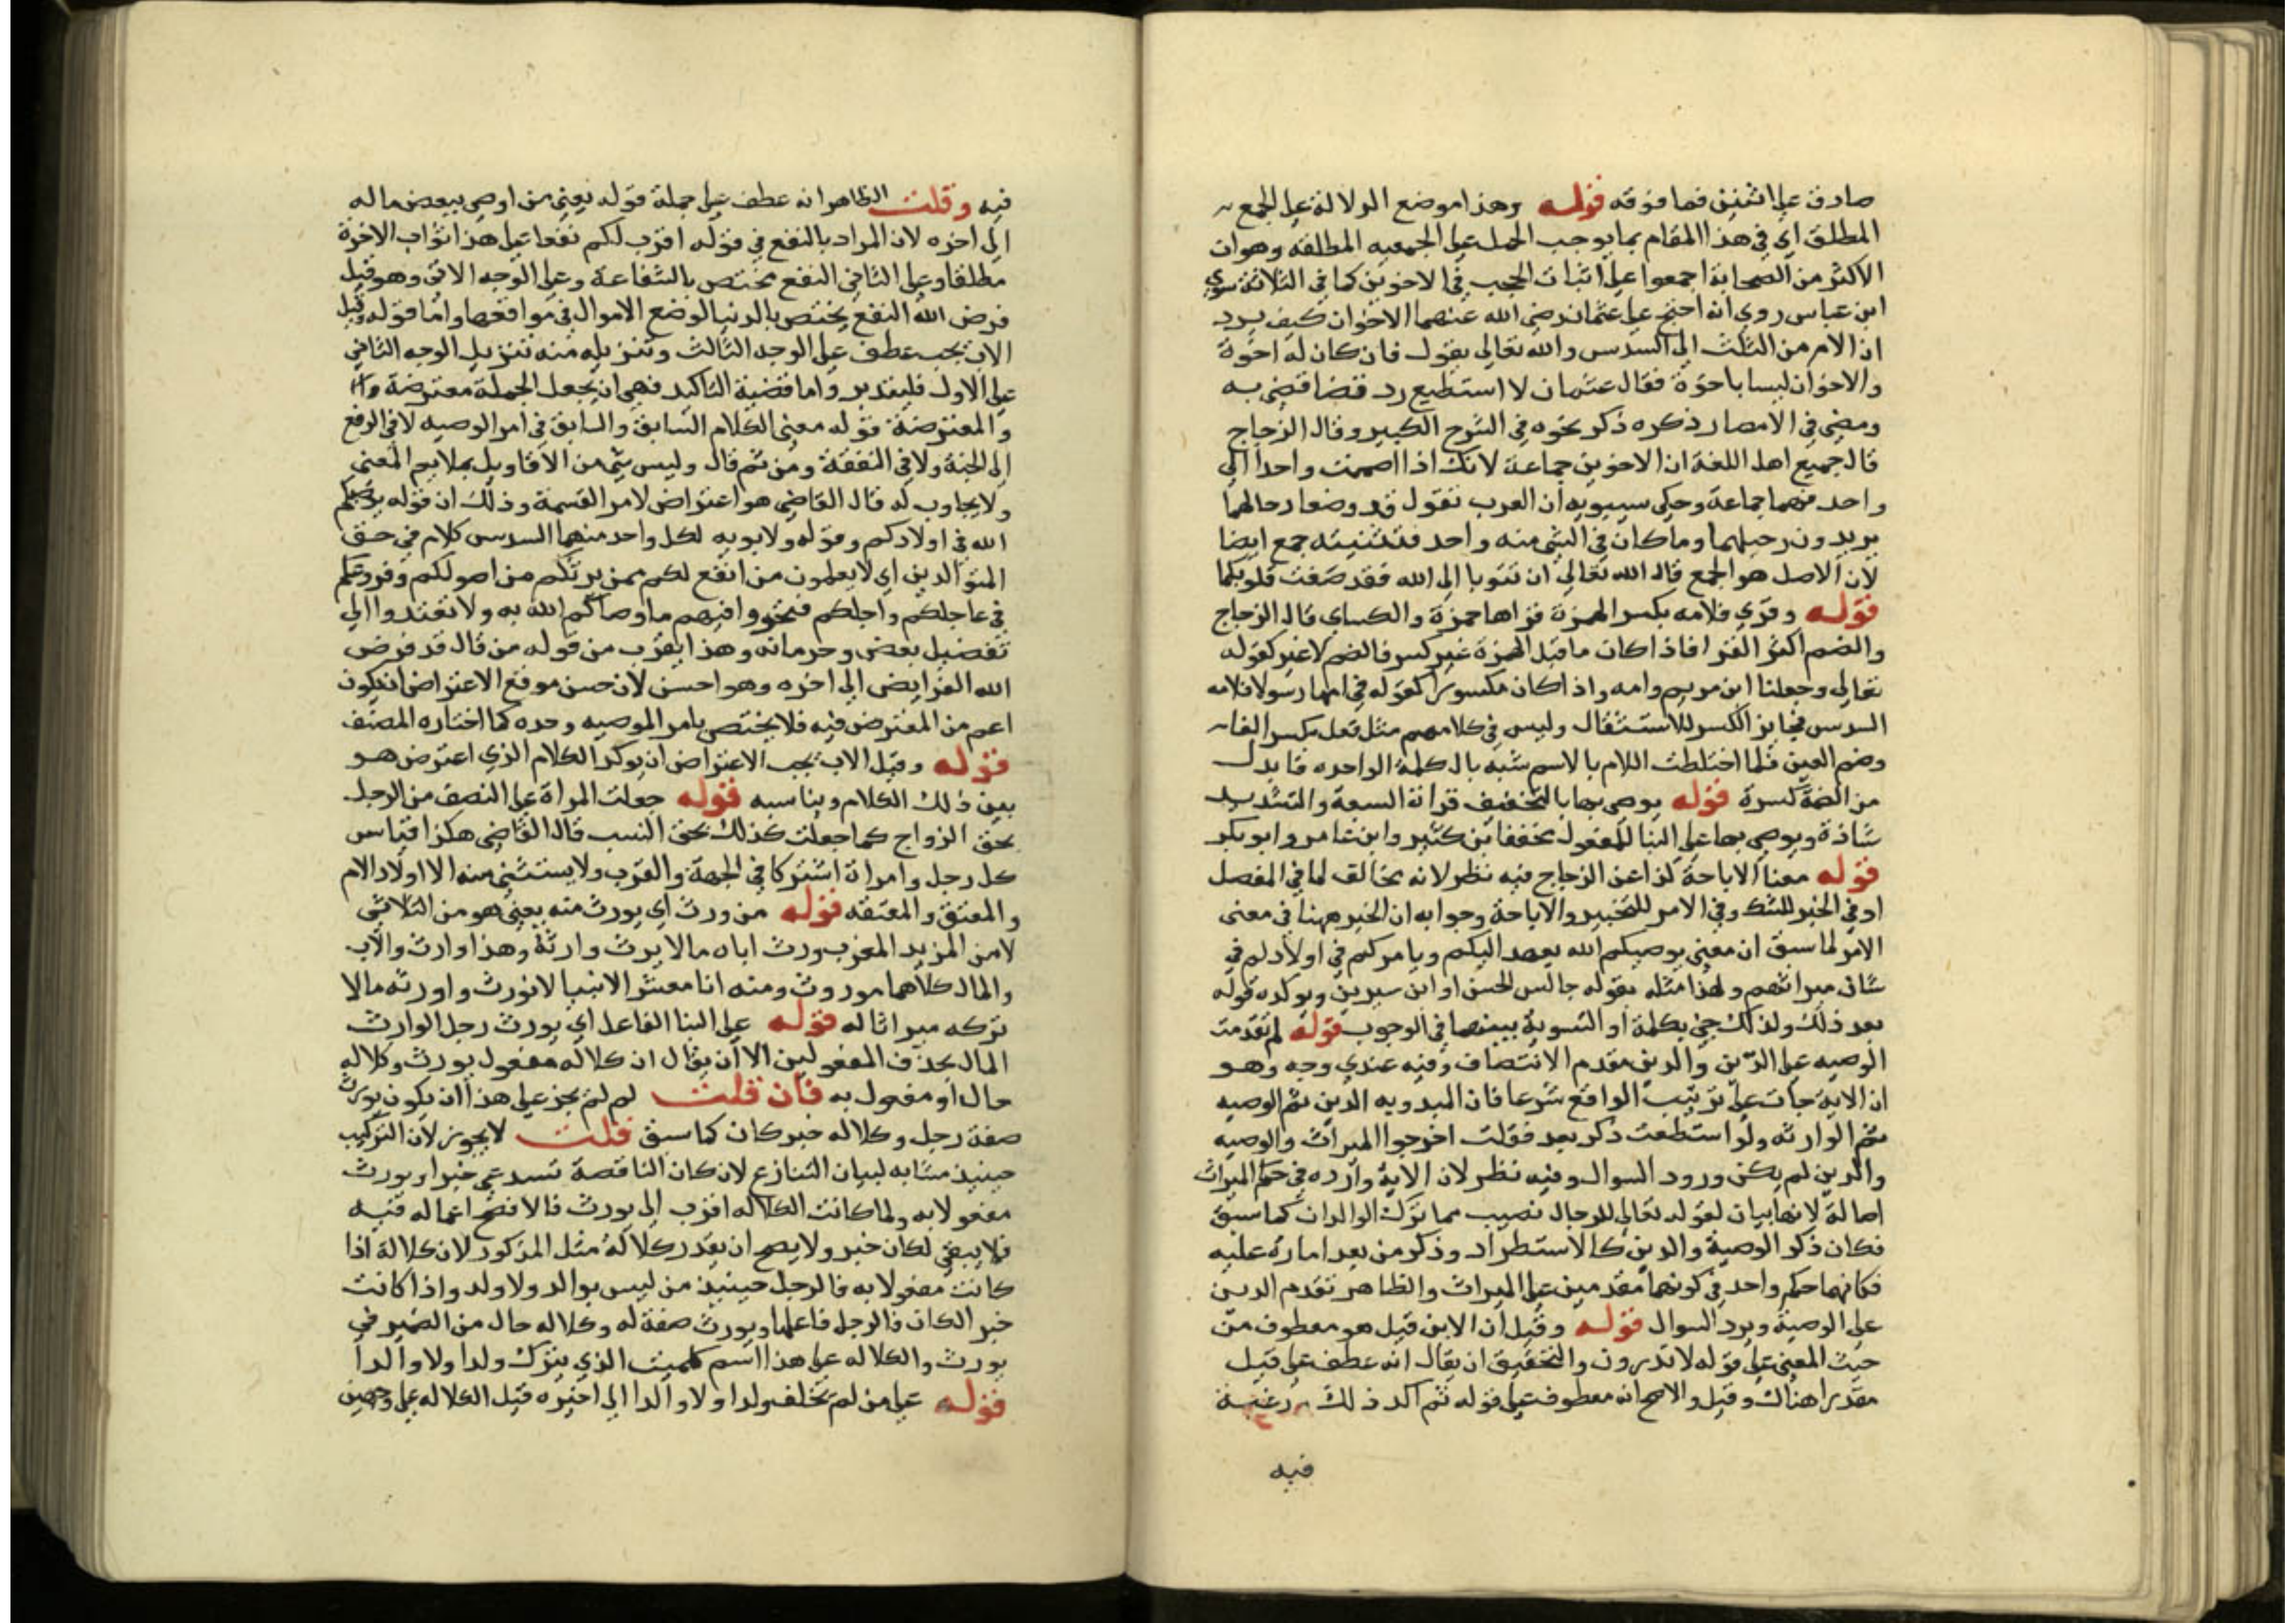 صادق على اثنين فما فوقه قوله وهذا موضع الدلالة على الجمع
المطلق اي في هذا المقام بما يوجب الحمل على الجمعيه المطلقه وهو ان
الاكثر من الصحابة اجمعوا على اثبات الحجب في الاخوين كما في الثلاثة سوي
ابن عباس روي انه احتج على عثمان رضي الله عنهما الاخوان كيف يرد
ان الام من الثلث الى السدس والله تعالى يقول فان كان له اخوة
والاخوان ليسا باخوة فقال عثمان لا استطيع رد قضا قضي به
ومضى في الامصار ذكره ذكر نحوه في الشرح الكبير وقال الزجاج
قال جميع اهل اللغة ان الاخوين جماعة لانك اذا اضممت واحدا الى
واحد فهما جماعة وحكى سيبويه ان العرب تقول قد وضعا رحالهما
يريدون رحليهما وما كان في الشي منه واحد فتثنيته جمع ايضا
لان الاصل هو الجمع قال الله تعالى ان تتوبا الى الله فقد صغت قلوبكما
قوله وقري فلامه بكسر الهمزة قراها حمزة والكساي قال الزجاج
والضم اكثر القرا فاذا كان ما قبل الهمزة غير كسر فالضم لا غير كقوله
تعالى وجعلنا ابن مريم وامه واذا كان مكسورا كقوله في امها رسولا فلامه
السدس فجايز الكسر للاستثقال وليس في كلامهم مثل فعل بكسر الفا
وضم العين فلما اختلطت اللام بالاسم شبه بالكلمة الواحده فابدل
من الضمة كسرة قوله يوصي بها بالتخفيف قراة السبعة والتشديد
شاذة ويوصى بها على البنا للمفعول مخففا بن كثير وابن عامر وابو بكر
قوله معنا الاباحة كذا عن الزجاج فيه نظر لانه مخالف لما في المفصل
او في الخبر للشك وفي الامر للتخيير والاباحة وجوابه ان الخبر ههنا في معنى
الامر لما سبق ان معنى يوصيكم الله يعهد اليكم ويامركم في اولادكم في
شان ميراثهم ولهذا مثله بقوله جالس الحسن او ابن سيرين ويوكده قوله
بعد ذلك ولذلك جي بكلمة او التسوية بينهما في الوجوب قوله لم تقدمت
الوصيه على الدين والدين مقدم الانتصاف وفيه عندي وجه وهو
ان الاية جات على ترتيب الواقع شرعا فان المبدو به الدين ثم الوصيه
ثم الوارثه ولو استطعت ذكر بعد فقلت اخرجوا الميراث والوصيه
والدين لم يكن ورود السوال وفيه نظر لان الاية وارده في حكم الميراث
اصالة لانها بيان لقوله تعالى للرجال نصيب مما ترك الوالدان كما سبق
فكان ذكر الوصية والدين كالاستطراد وذكر من بعد اماره عليه
فكانهما حكم واحد في كونهما مقدمين على الميراث والظاهر تقدم الدين
على الوصية ويرد السوال قوله وقيل ان الابن قيل هو معطوف من
حيث المعنى على قوله لا تدرون والتحقيق ان يقال انه عطف على قيل
مقدرا هناك وقيل والاصح انه معطوف على قوله ثم اكد ذلك رغبة
فيه
فيه وقلت الظاهر انه عطف على جملة قوله يعني من اوصى ببعض ماله
الى اخره لان المراد بالنفع في قوله اقرب لكم نفعا على هذا ثواب الاخرة
مطلقا وعلى الثاني النفع مختص بالشفاعة وعلى الوجه الاتي وهو قيل
فرض الله النفع يختص بالدنيا لوضع الاموال في مواقعها واما قوله وقيل
الاب يجب عطف على الوجه الثالث وتنزيله منه تنزيل الوجه الثاني
على الاول فليتدبر واما قضية التاكيد فهي ان يجعل الجملة معترضة
والمعترضة قوله معنى الكلام السابق والسابق في امر الوصيه لا في الرفع
الى الجنة ولا في النفقة ومن ثم قال وليس شي من الاقاويل بملايم المعنى
ولا يجاوب له قال القاضي هو اعتراض لامر القسمة وذلك ان قوله يوصيكم
الله في اولادكم وقوله ولابويه لكل واحد منهما السدس كلام في حق
المتوالدين اي لا يعلمون من انفع لكم ممن يرثكم من اصولكم وفروعكم
في عاجلكم واجلكم فتحروا فيهم ما وصاكم الله به ولا تعتدوا الى
تفضيل بعض وحرمانه وهذا يقرب من قوله من قال قد فرض
الله الفرايض الى اخره وهو احسن لان حسن موقع الاعتراض ان يكون
اعم من المعترض فيه فلا يختص بامر الوصيه وحده كما اختاره المصنف
قوله وقيل الاب يجب الاعتراض ان يوكد الكلام الذي اعترض هو
بين ذلك الكلام ويناسبه قوله جعلت المراة على النصف من الرجل
بحق الزواج كما جعلت كذلك بحق النسب قال القاضي هكذا قياس
كل رجل وامراة اشتركا في الجهة والقرب ولا يستثنى منه الا اولاد الام
والمعتق والمعتقه قوله من ورث اي يورث منه يعني هو من الثلاثي
لا من المزيد المغرب ورث اباه مالا يرث وارثة وهذا وارث والاب
والمال كلاهما موروث ومنه انا معشر الانبيا لا نورث واورثه مالا
تركه ميراثا له قوله على البنا الفاعل اي يورث رجل الوارث
المال بحذف المفعولين الا ان يقال ان كلاله مفعول يورث وكلاله
حال او مفعول به فان قلت لم لم يجز على هذا ان يكون يورث
صفة رجل وكلاله خبر كان كما سبق قلت لا يجوز لان التركيب
حينيذ مشابه لبيان التنازع لان كان الناقصة تستدعي خبرا ويورث
مفعولا به ولما كانت الكلاله اقرب الى يورث فالافصح اعماله فيه
فلا يبقى لكان خبر ولا يصح ان يقدر كلالة مثل المذكور لان كلالة اذا
كانت مفعولا به فالرجل حينيذ من ليس بوالد ولا ولد واذا كانت
خبر الكان فالرجل فاعلها ويورث صفة له وكلاله حال من الضمير في
يورث والكلاله على هذا اسم للميت الذي يترك ولدا ولا والدا
قوله على من لم يخلف ولدا ولا والدا الى اخيره قيل الكلاله على وجهين